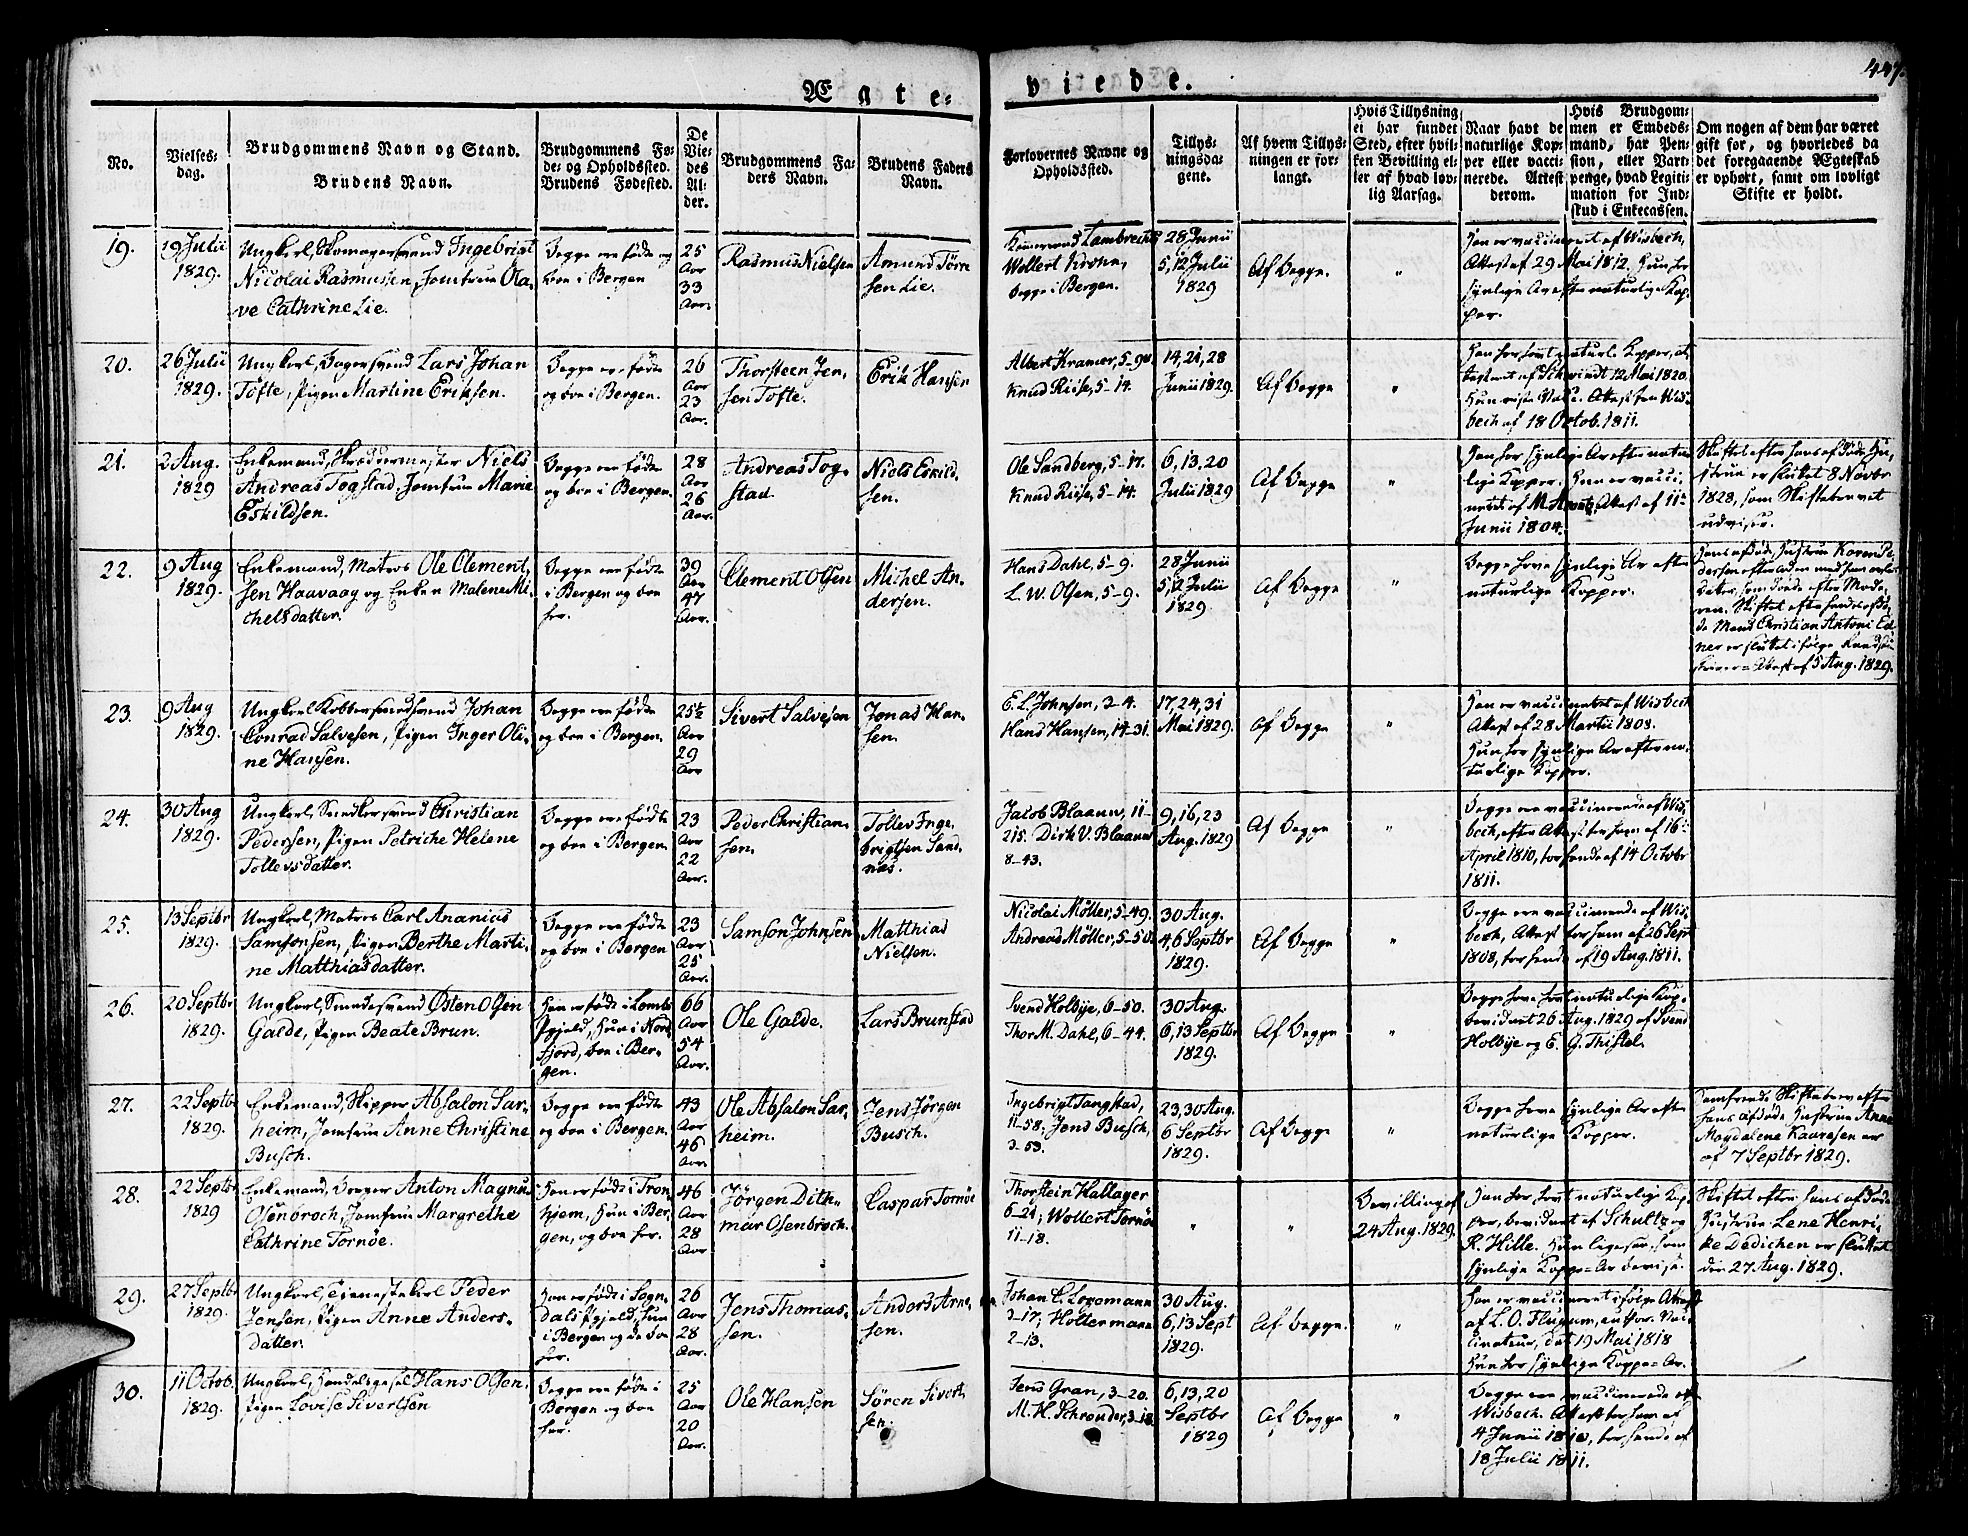 Ægte-
viede.
447.
No.
Vielses-
dag.
Brudgommens Navn og Stand.
Brudens Navn.
Brudgommens Fø-
de- og Opholdssted.
Brudens Fødested.
De
Vie-
des
Al-
der.
Brudgommens Fa-
ders Navn.
Brudens Faders
Navn.
Forlovernes Navne og
Opholdssted.
Tillys-
ningsda-
gene.
Af hvem Tillys-
ningen er for-
langt.
Hvis Tillysning
ei har fundet
Sted, efter hvil-
ken Bevilling el-
ler af hvad lov-
lig Aarsag.
Naar havt de
naturlige Kop-
per eller vacci-
nerede. Attest
derom.
Hvis Brudgom-
men er Embeds-
mand, har Pen-
sion, eller Vart-
penge, hvad Legiti-
mation for Ind-
skud i Enkecassen.
Om nogen af dem har været
gift før, og hvorledes da
det foregaaende Ægteskab
er ophørt, samt om lovligt
Skifte er holdt.
19.
19 Julii
1829.
Ungkarl, Skomagersvend Ingebrigt
Nicolai Rasmussen, Jomfrue Ola-
ve Cathrine Lie.
Begge ere fødte og
boe i Bergen
25
Aar
33
Aar.
Rasmus Nielsen
Amund Tørre
sen Lie.
Lambrecht
Wollert Krohn,
begge i Bergen.
28 Junii
5, 12 Julii
1829
Af Begge.
"
Han er vaccineret af Wisbech,
Attest af 29 Mai 1812. Hun har
synlige Ar efter naturlige Kop-
per.
20.
26 Julii
1829.
Ungkarl, Bagersvend Lars Johan
Tofte, Pigen Martine Eriksen.
Begge ere fødte
og boe i Bergen.
26
Aar
23
Aar.
Thorsteen Jen-
sen Tofte.
Erik Hansen
Albert Kramer, 5-90
Knud Riise, 5-14.
14, 21, 28
Junii 1829.
Af Begge
"
Han har havt naturl. Kopper, at-
testeret af Schwindt 12 Mai 1820.
Hun viste Vacc. Attest fra Wis-
bech af 18 Octob. 1811.
21.
2 Aug.
1829
Enkemand, Skræddermester Niels
Andreas Togstad, Jomfrue Marie
Eskildsen.
Begge ere fødte
og boe i Bergen.
28
Aar
26
Aar.
Andreas Tog-
stad.
Niels Eskild-
sen.
Ole Sandberg, 5-17.
Knud Riise, 5-14.
6, 13, 20
Julii 1829
Af Begge
"
Han har synlige Ar efter natur-
lige Kopper. Hun er vacci-
neret af M. Attest af 11te
Junii 1804.
Skiftet efter hans afdøde Hu-
strue er sluttet 8 Novbr
1828, som Skiftebrevet
udviser.
22.
9 Aug
1829.
Enkemand, Matros Ole Clement-
sen Haavaag og Enken Malene Mi-
chelsdatter.
Begge ere fødte
i Bergen og boe
her.
39
Aar
47
Aar.
Clement Olsen
Michel An-
dersen.
Hans Dahl, 5-9.
L. W. Olsen, 5-9.
28 Junii
5, 12 Julii
1829.
Af Begge
"
Begge have synlige Ar efter
naturlige Kopper.
Hans afdøde Hustrue Karen Pe-
dersen efterlod med ham een
Datter, som døde efter Mode-
ren. Skiftet efter hendes afdø-
de Mand Christian Antoni Ed-
ner er sluttet ifølge
Attest af 5 Aug. 1829.
23.
9 Aug
1829.
Ungkarl Kobbersmedsvend Johan
Conrad Salvesen, Pigen Inger Oli-
ne Hansen.
Begge ere fødte
og boe i Bergen.
25½
Aar
29
Aar
Sivert Salvesen
Jonas Han-
sen.
E. L. Johnsen, 3-4.
Hans Hansen, 14-31.
17, 24, 31
Mai 1829.
Af Begge
"
Han er vaccineret af Wisbech
Attest af 28 Martii 1808.
Hun har synlige Ar efter na-
turlige Kopper.
24.
30 Aug
1829.
Ungkarl, Snedkersvend Christian
Pedersen, Pigen Petriche Helene
Tollevsdatter.
Begge ere fødte
og boe i Bergen.
23
Aar
22
Aar.
Peder Christian-
sen.
Tollev Inge-
brigtsen Sand-
nes.
Jacob Blaauw, 11-
215. Dirk V. Blaauw
8-43.
9, 16, 23
Aug. 1829
Af Begge
"
Begge ere vaccinerede af Wis-
bech, efter Attest for ham af 16de
April 1810, for hende af 14 Octobr
1811.
25.
13 Septbr
1829.
Ungkarl, Matros Carl Ananias
Samsonsen, Pigen Berthe Marti-
ne Matthiasdatter.
Begge ere fødte
og boe i Bergen
23
Aar
25
Aar.
Samson Johnsen
Matthias
Nielsen.
Nicolai Møller, 5-49.
Andreas Møller, 5-50.
30 Aug.
4, 6 Septbr
1829.
Af Begge
"
Begge ere vaccinerede af Wis-
bech, Attest for ham af 26 Sept
1808, for hende af 19 Aug. 1811.
26.
20 Septbr
1829.
Ungkarl, Snedkersvend Østen Olsen
Galde, Pigen Beate Brun.
Han er født i Lomb
Pgjeld, Hun i Nord
fjord, boe i Ber-
gen.
66
Aar
54
Aar.
Ole Galde.
Lars Brunstad
Svend Holbye, 6-50.
Thor M. Dahl, 6-44.
30 Aug.
6, 13 Septbr
1829.
Af Begge
"
Begge have havt naturlige Kop.
bevidnet 26 Aug. 1829 af Svend
Holbye og E. G. Thistel.
27.
22 Septbr
1829.
Enkemand, Skipper Absalon Sar-
heim, Jomfrue Anne Christine
Busch.
Begge ere fødte
og boe i Bergen.
43
Aar
46
Aar.
Ole Absalon Sar-
heim.
Jens Jørgen
Busch.
Ingebrigt Tangstad,
11-58, Jens Busch,
3-53.
23, 30 Aug.
6 Septbr
1829.
Af Begge
"
Begge have synlige Ar efter
naturlige Kopper.
Samfrænde Skiftebrev efter
hans afdøde Hustrue Anne
Magdalene Kaaresen er
af 7 Septbr 1829.
28.
22 Septbr
1829
Enkemand, Borger Anton Magnus
Osenbroch, Jomfrue Margrethe
Cathrine Tornøe.
Han er født i Tron-
hjem, Hun i Ber-
gen, og boe her.
46
Aar
28
Aar
Jørgen Dith-
mar Osenbroch.
Caspar Tornøe
Thorstein Hallager
6-21; Wollert Tornøe
11-18.
"
"
Bevilling af
24 Aug. 1829.
Han har havt naturlige Kop-
per, bevidnet af Schultz og
R. Hille. Hun ligesaa, som
synlige Koppe-Ar bevise.
Skiftet efter hans afdøde
Hustrue Lene Henri-
ke Dedichen er sluttet
den 27. Aug. 1829.
29.
27 Septbr
1829.
Ungkarl, Tjenestekarl Peder
Jensen, Pigen Anne Anders-
datter.
Han er født i Sogn-
dals Pgjeld, Hun
i Bergen og de boe
her.
26
Aar
28
Aar.
Jens Thomas-
sen.
Anders Arne-
sen.
Johan C. Logemann
3-17; Holtermann
2-13.
30 Aug.
6, 13 Sept
1829.
Af begge.
"
Han er vaccineret ifølge Attest
af L. O. Flugum, author. Vac-
cinateur, dat 19 Mai 1818
Hun har synlige Koppe-Ar.
30.
11 Octob.
1829.
Ungkarl, Handelsgesel Hans Olsen,
Pigen Lovise Sivertsen
Begge ere fødte i
Bergen og boe
her.
25
Aar
20
Aar.
Ole Hansen
Søren Sivert-
sen.
Jens Gran, 3-20.
M. H. Schrøuder, 3-18
6, 13, 20
Septbr
1829
Af Begge
"
Begge ere vaccinerede af
Wisbech. Attest for ham af
4 Junii 1810, for hende af
18 Julii 1811.